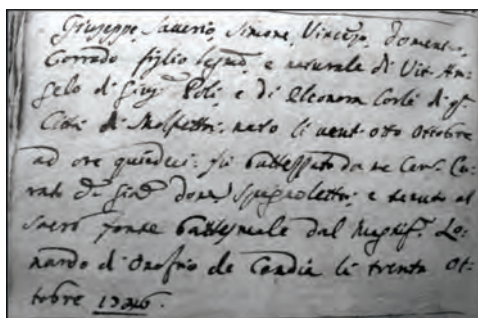 Giuseppe, Saverio, Simone, Vincenzo, Domenico,
Corrado figlio legmo, e naturale di Vit'An-
gelo di Giuse Poli, e di Eleonora Corlè di qta
Città di Molfetta, nato li vent'otto ottobre
ad ore quindici: fù battezzato da me Can. Cu-
rato D. Domco Spagnoletti, e tenuto al
sacro fonte battesimale dal Magnif. Lo-
nardo di Onofrio de Candia li trenta ot-
tobre 1746.